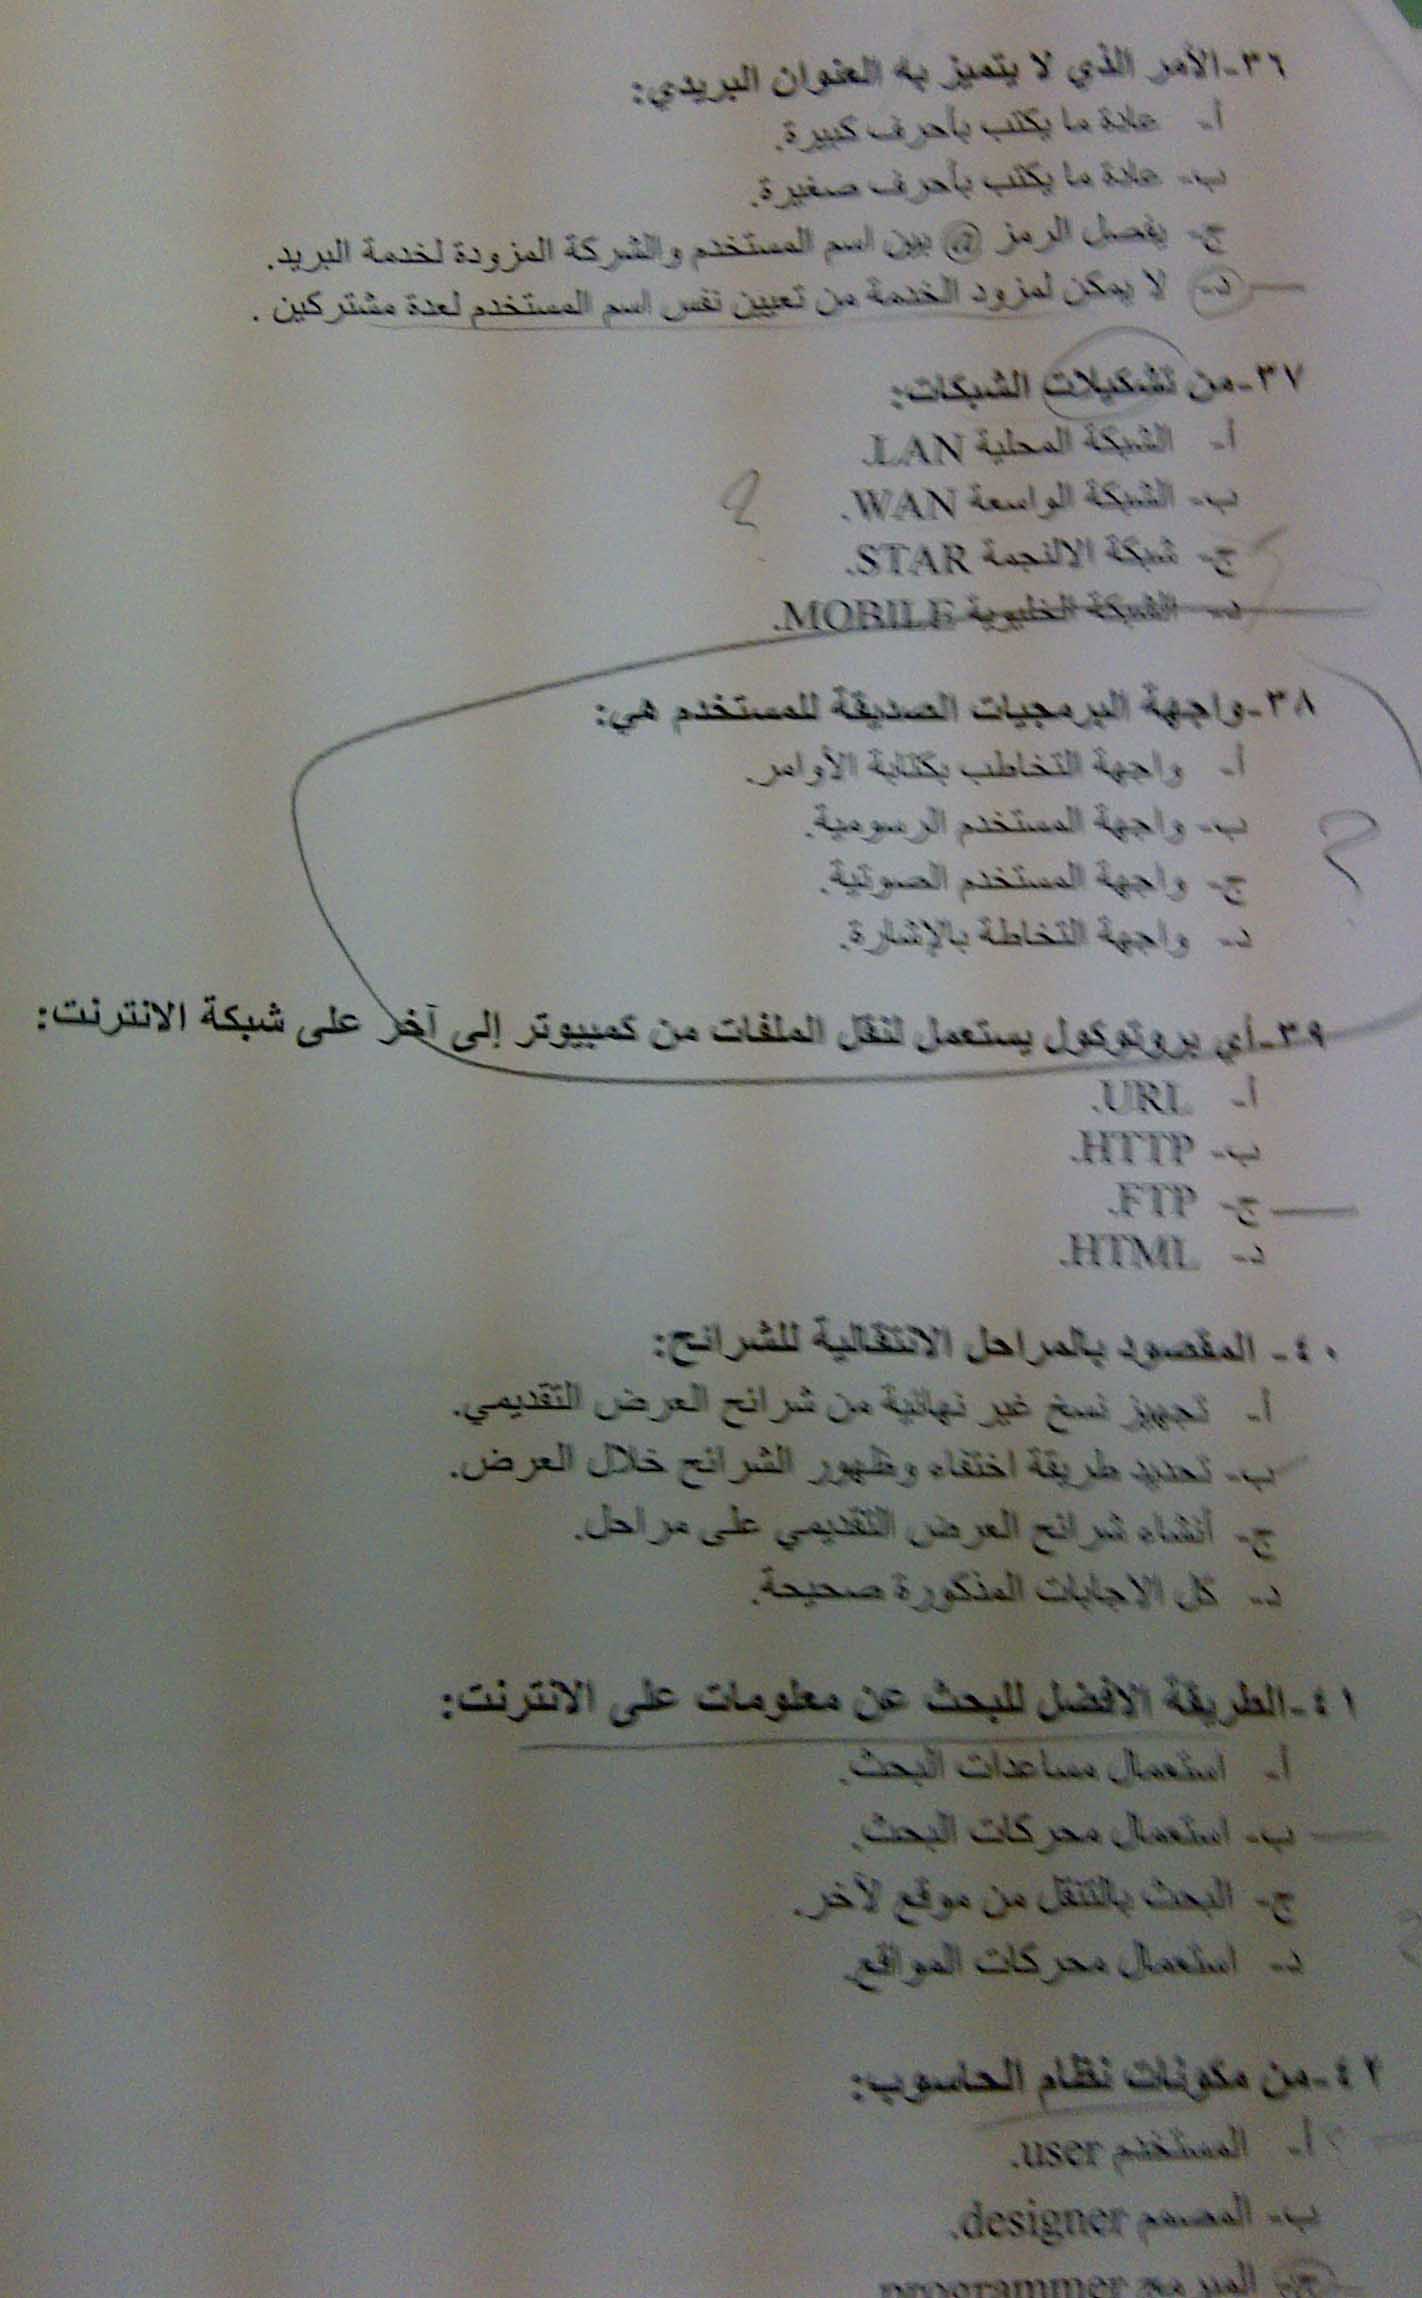 ٣٦-الأمر الذي لا يتميز به العنوان البريدي:
أ- عادة ما يكتب بأحرف كبيرة.
ب- عادة ما يكتب بأحرف صغيرة.
ج- يفصل الرمز @ بين اسم المستخدم والشركة المزودة لخدمة البريد.
د- لا يمكن لمزود الخدمة من تعيين نفس اسم المستخدم لعدة مشتركين .
٣٧-من تشكيلات الشبكات:
أ- الشبكة المحلية LAN.
ب- الشبكة الواسعة WAN.
ج- شبكة الالنجمة STAR.
د- الشبكة الخليوية MOBILE.
؟
٣٨-واجهة البرمجيات الصديقة للمستخدم هي:
أ- واجهة التخاطب بكتابة الأوامر.
ب- واجهة المستخدم الرسومية.
ج- واجهة المستخدم الصوتية.
د- واجهة التخاطة بالإشارة.
؟
٣٩-أي بروتوكول يستعمل لنقل الملفات من كمبيوتر إلى آخر على شبكة الانترنت:
أ- URL.
ب- HTTP.
ج- FTP.
د- HTML.
٤٠- المقصود بالمراحل الانتقالية للشرائح:
أ- تجهيز نسخ غير نهائية من شرائح العرض التقديمي.
ب- تحديد طريقة اختفاء وظهور الشرائح خلال العرض.
ج- أنشاء شرائح العرض التقديمي على مراحل.
د- كل الاجابات المذكورة صحيحة.
٤١-الطريقة الافضل للبحث عن معلومات على الانترنت:
أ- استعمال مساعدات البحث.
ب- استعمال محركات البحث.
ج- البحث بالتنقل من موقع لآخر.
د- استعمال محركات المواقع.
٤٢-من مكونات نظام الحاسوب:
أ- المستخدم user.
ب- المصمم designer.
ج- المبرمج programmer